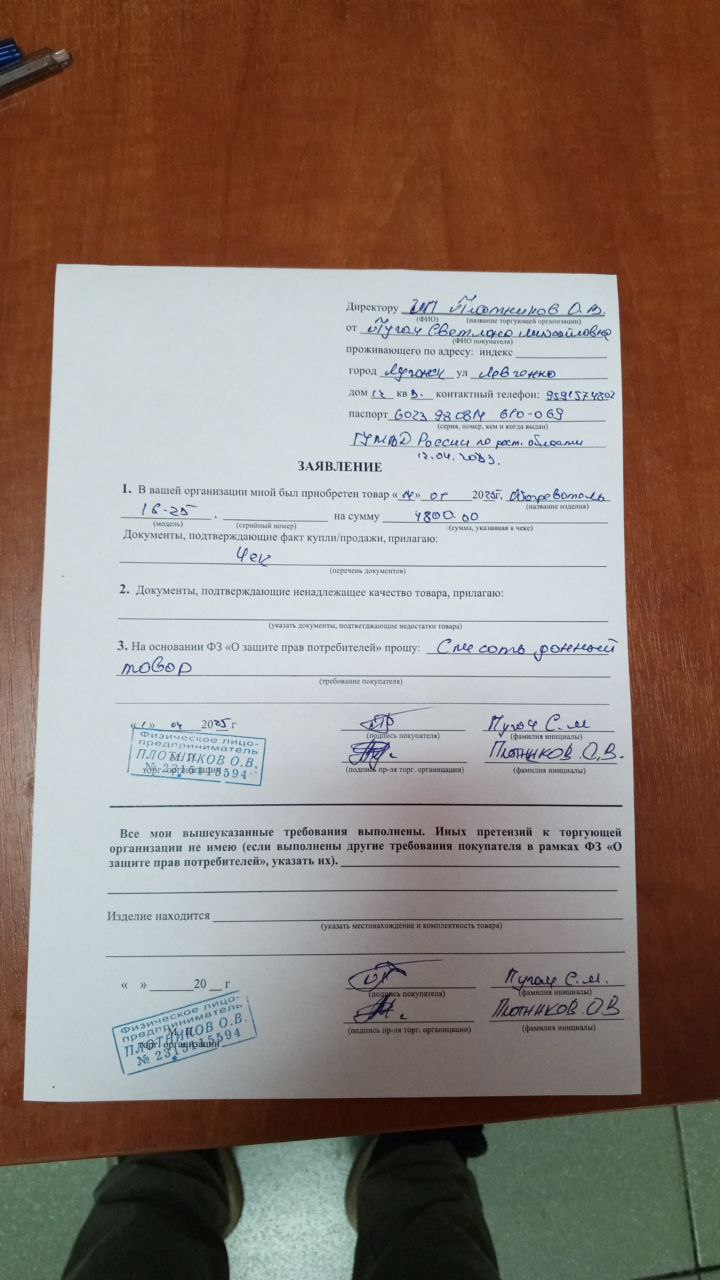 Директору ИП Плотников О.В.
(ФИО) (название торгующей организации)
от Пугач Светлана Михайловна
(ФИО покупателя)
проживающего по адресу: индекс
город Луганск ул Левченко
дом кв контактный телефон: 9591574802
паспорт 6023 610-069
(серия, номер, кем и когда выдан)
ГУМВД России по рост. области
ЗАЯВЛЕНИЕ
1. В вашей организации мной был приобретен товар « » 2025г, Обогреватель
(название изделия)
18-25 , на сумму 4800.00
(модель) (серийный номер) (сумма, указанная в чеке)
Документы, подтверждающие факт купли/продажи, прилагаю:
Чек
(перечень документов)
2. Документы, подтверждающие ненадлежащее качество товара, прилагаю:
(указать документы, подтветджающие недостатки товара)
3. На основании ФЗ «О защите прав потребителей» прошу: данный
товар
(требование покупателя)
« » 04 2025 г
(подпись покупателя) Пугач С.М
(фамилия инициалы)
Физическое лицо-
предприниматель
ПЛОТНИКОВ О.В.
М.П.
торг. организации
(подпись пр-ля торг. организации) Плотников О.В.
(фамилия инициалы)
Все мои вышеуказанные требования выполнены. Иных претензий к торгующей
организации не имею (если выполнены другие требования покупателя в рамках ФЗ «О
защите прав потребителей», указать их).
Изделие находится
(указать местонахождение и комплектность товара)
« » 20 г
(подпись покупателя) Пугач С.М.
(фамилия инициалы)
Физическое лицо-
предприниматель
ПЛОТНИКОВ О.В.
М.П.
торг. организации
(подпись пр-ля торг. организации) Плотников О.В
(фамилия инициалы)